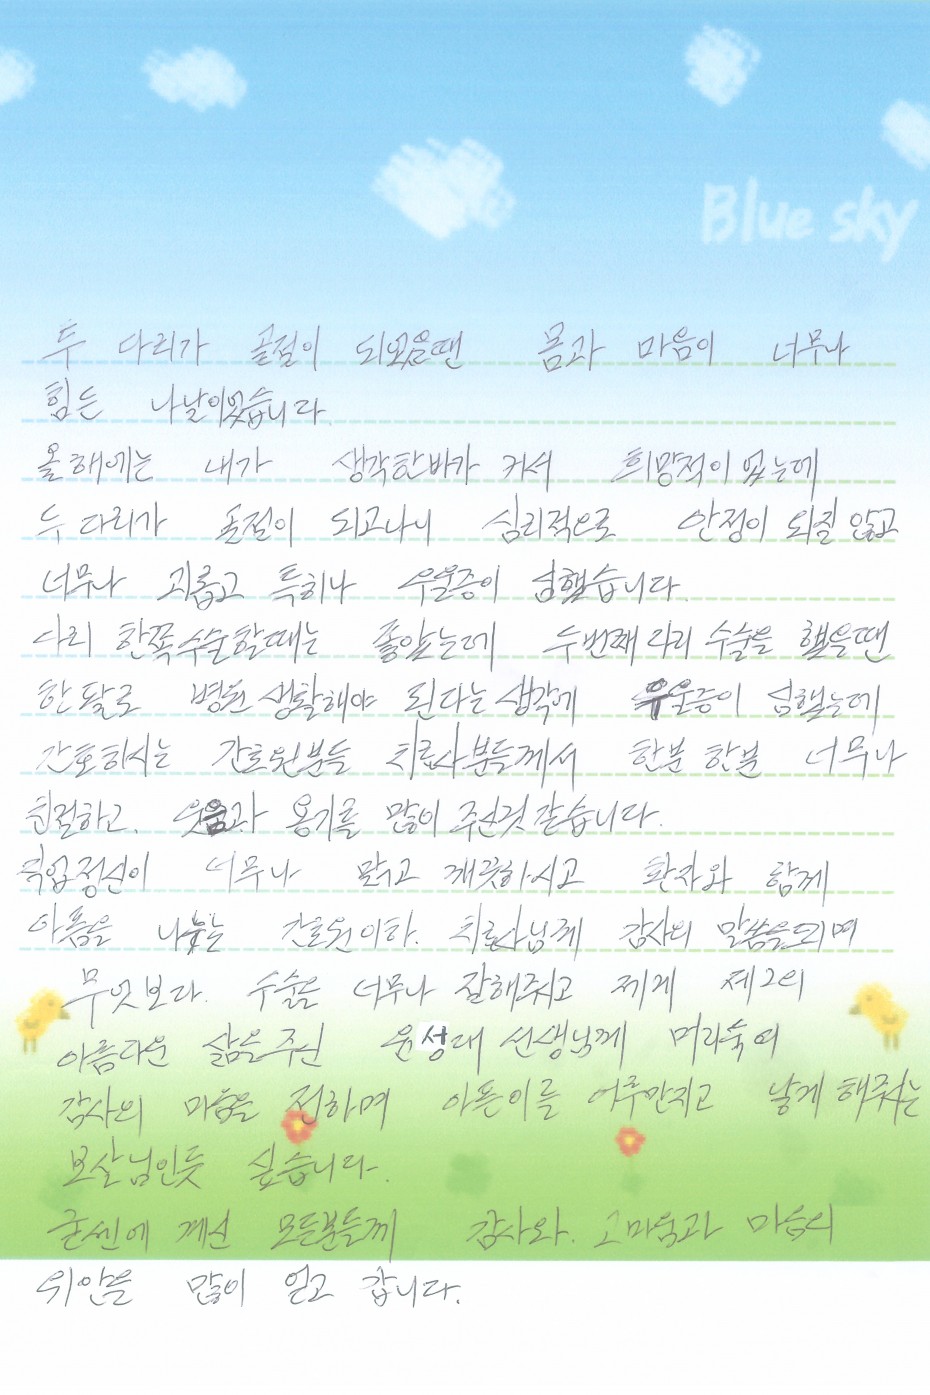 Blue sky
두 다리가 골절이 되었을땐 몸과 마음이 너무나
힘든 나날이었습니다.
올해에는 내가 생각한바가 커서 희망적이었는데
두다리가 골절이 되고나니 심리적으로 안정이 되질 않고
너무나 괴롭고 특히나 우울증이 심했습니다.
다리 한쪽수술할때는 좋았는데 두번째 다리 수술을 했을땐
한달로 병원생활해야 된다는 생각에 우울증이 심했는데
간호하시는 간호원분들 치료사분들께서 한분 한분 너무나
친절하고. 웃음과 용기를 많이 주신것 같습니다.
직업정신이 너무나 맑고 깨끗하시고 환자와 함께
아픔을 나눚는 간호원이하. 치료사님께 감사의 말씀을드리며
무엇보다. 수술을 너무나 잘해주시고 제게 제2의
아름다운 삶을주신 윤성대 선생님께 머리숙여
감사의 마음을 전하며 아픈이를 어루만지고 낳게 해주시는
보살님인듯 싶습니다.
굳센에 계신 모든분들께 감사와. 고마움과 마음의
위안을 많이 얻고 갑니다.